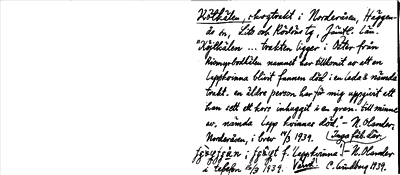 Kötthålen, skogstrakt i Norderåsen, Häggen-
ås sn, Lits och Rödöns tg. Jämtl. län.
"Kötthålen ... trakten ligger i Öster från
namnet har tillkomit av att en
Lappkvinna blivit funnen död i en i nämda
trakt. en äldre person har för mig uppgivit att
han sett ett kors inhuggit i en gran. till minne
av. nämda Lapp kvinnas död." – N. Olander,
Norderåsen, i brev 1939. Inga fäb. där.
i f. Lappkvinna. – N. Olander
i 1939. C. Lindberg 1939.